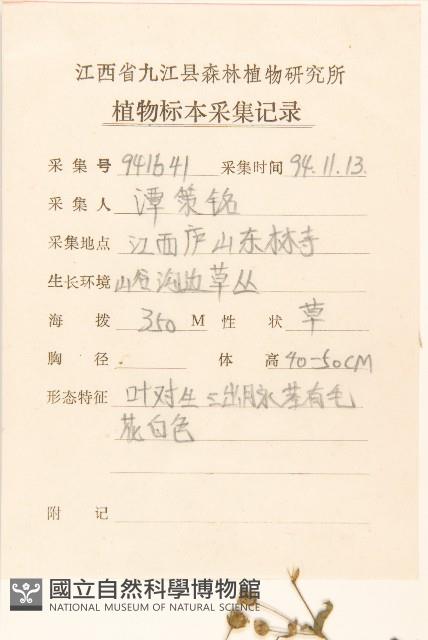 江西省九江县森林植物研究所
植物标本采集记录
采集号 941641 采集时间 94.11.13.
采集人 潭策铭
采集地点 江西庐山东林寺
生长环境 山谷沟边草丛
海拨 350 M 性状 草
胸径 体高 40-50CM
形态特征 叶对生 三出脉 茎有毛
花白色
附记
國立自然科學博物館
NATIONAL MUSEUM OF NATURAL SCIENCE